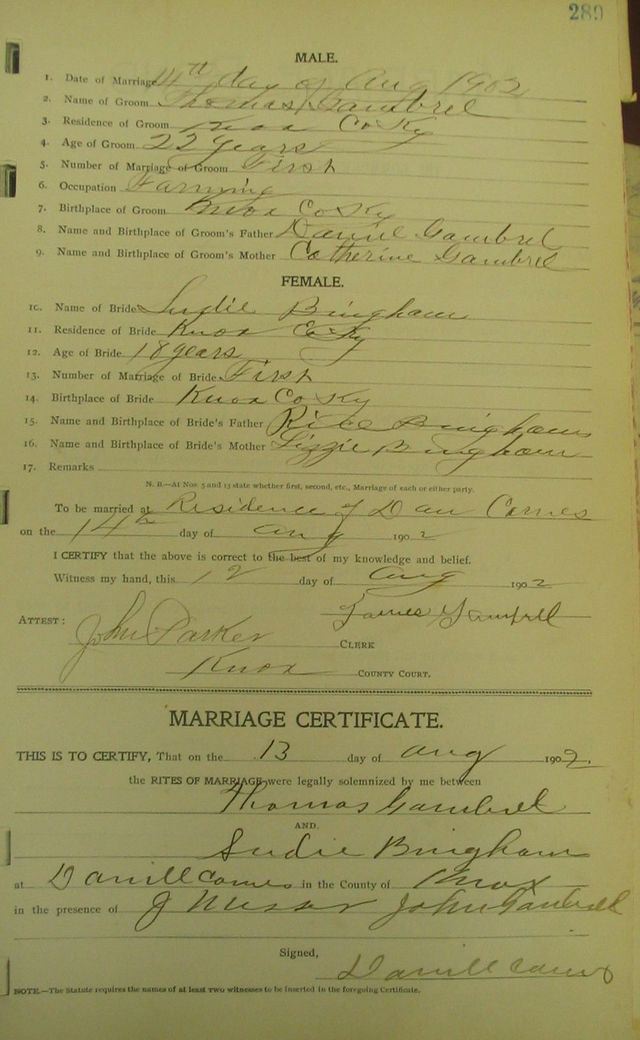 289
MALE.
1. Date of Marriage 14th day of Aug 1902
2. Name of Groom Thomas Gambrel
3. Residence of Groom Knox Co Ky
4. Age of Groom 22 years
5. Number of Marriage of Groom First
6. Occupation Farming
7. Birthplace of Groom Knox Co Ky
8. Name and Birthplace of Groom's Father Daniel Gambrel
9. Name and Birthplace of Groom's Mother Catherine Gambrel
FEMALE.
10. Name of Bride Sudie Bingham
11. Residence of Bride Knox Co Ky
12. Age of Bride 18 years
13. Number of Marriage of Bride First
14. Birthplace of Bride Knox Co Ky
15. Name and Birthplace of Bride's Father Rice Bingham
16. Name and Birthplace of Bride's Mother Lizzie Bingham
17. Remarks
N. B.—At Nos. 5 and 13 state whether first, second, etc., Marriage of each or either party.
To be married at Residence of Dan Carnes
on the 14th day of aug 1902
I CERTIFY that the above is correct to the best of my knowledge and belief.
Witness my hand, this 12 day of aug 1902
Gambrel
ATTEST: John Parker CLERK
Knox COUNTY COURT.
MARRIAGE CERTIFICATE.
THIS IS TO CERTIFY, That on the 13 day of aug 1902.
the RITES OF MARRIAGE were legally solemnized by me between
Thomas Gambrel
AND
Sudie Bingham
at in the County of Knox
in the presence of J John Gambrell
Signed,
NOTE.—The Statute requires the names of at least two witnesses to be inserted in the foregoing Certificate.